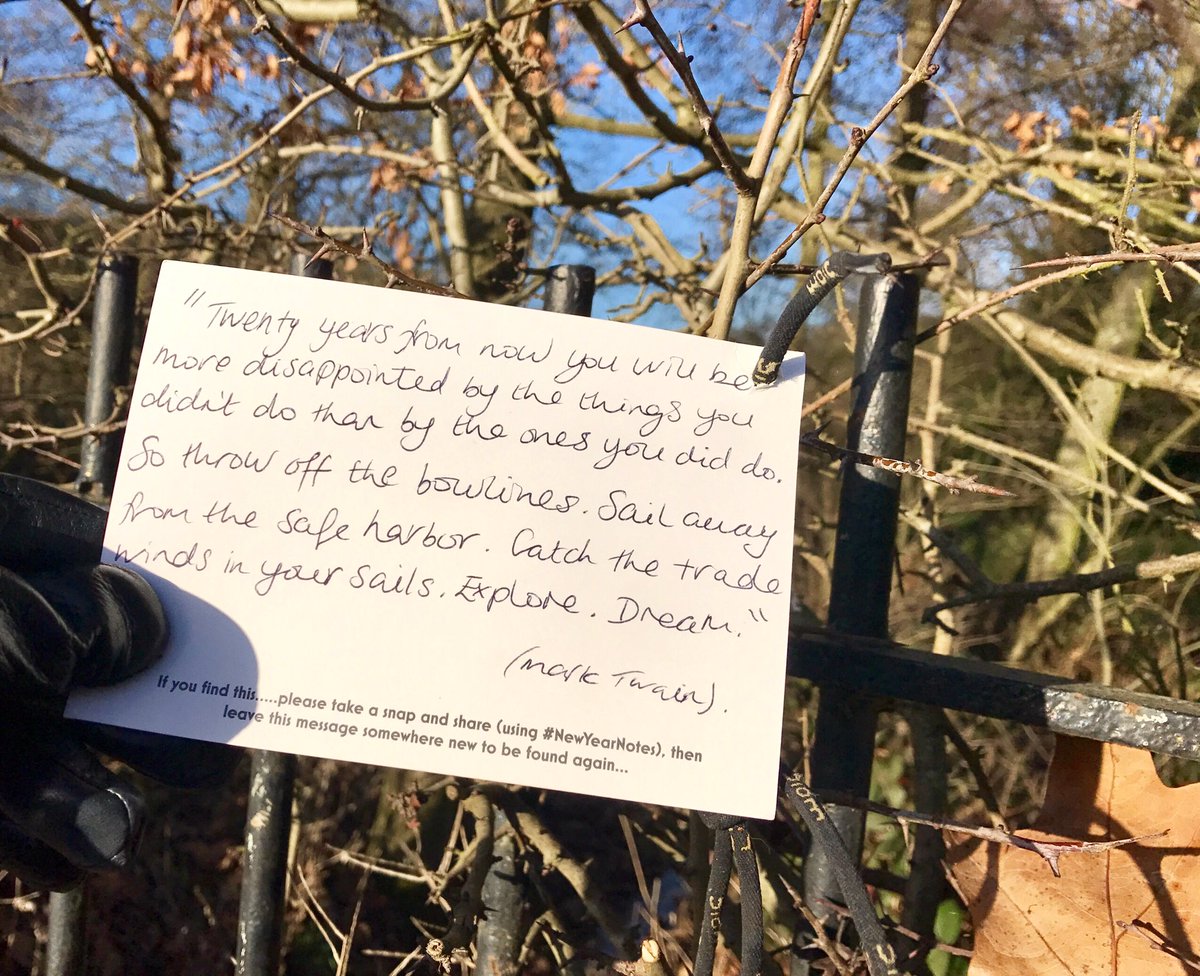 "Twenty years from now you will be
more disappointed by the things you
didn't do than by the ones you did do.
So throw off the bowlines. Sail away
from the safe harbor. Catch the trade
winds in your sails. Explore. Dream."
(Mark Twain).
If you find this.....please take a snap and share (using #NewYearNotes), then
leave this message somewhere new to be found again...